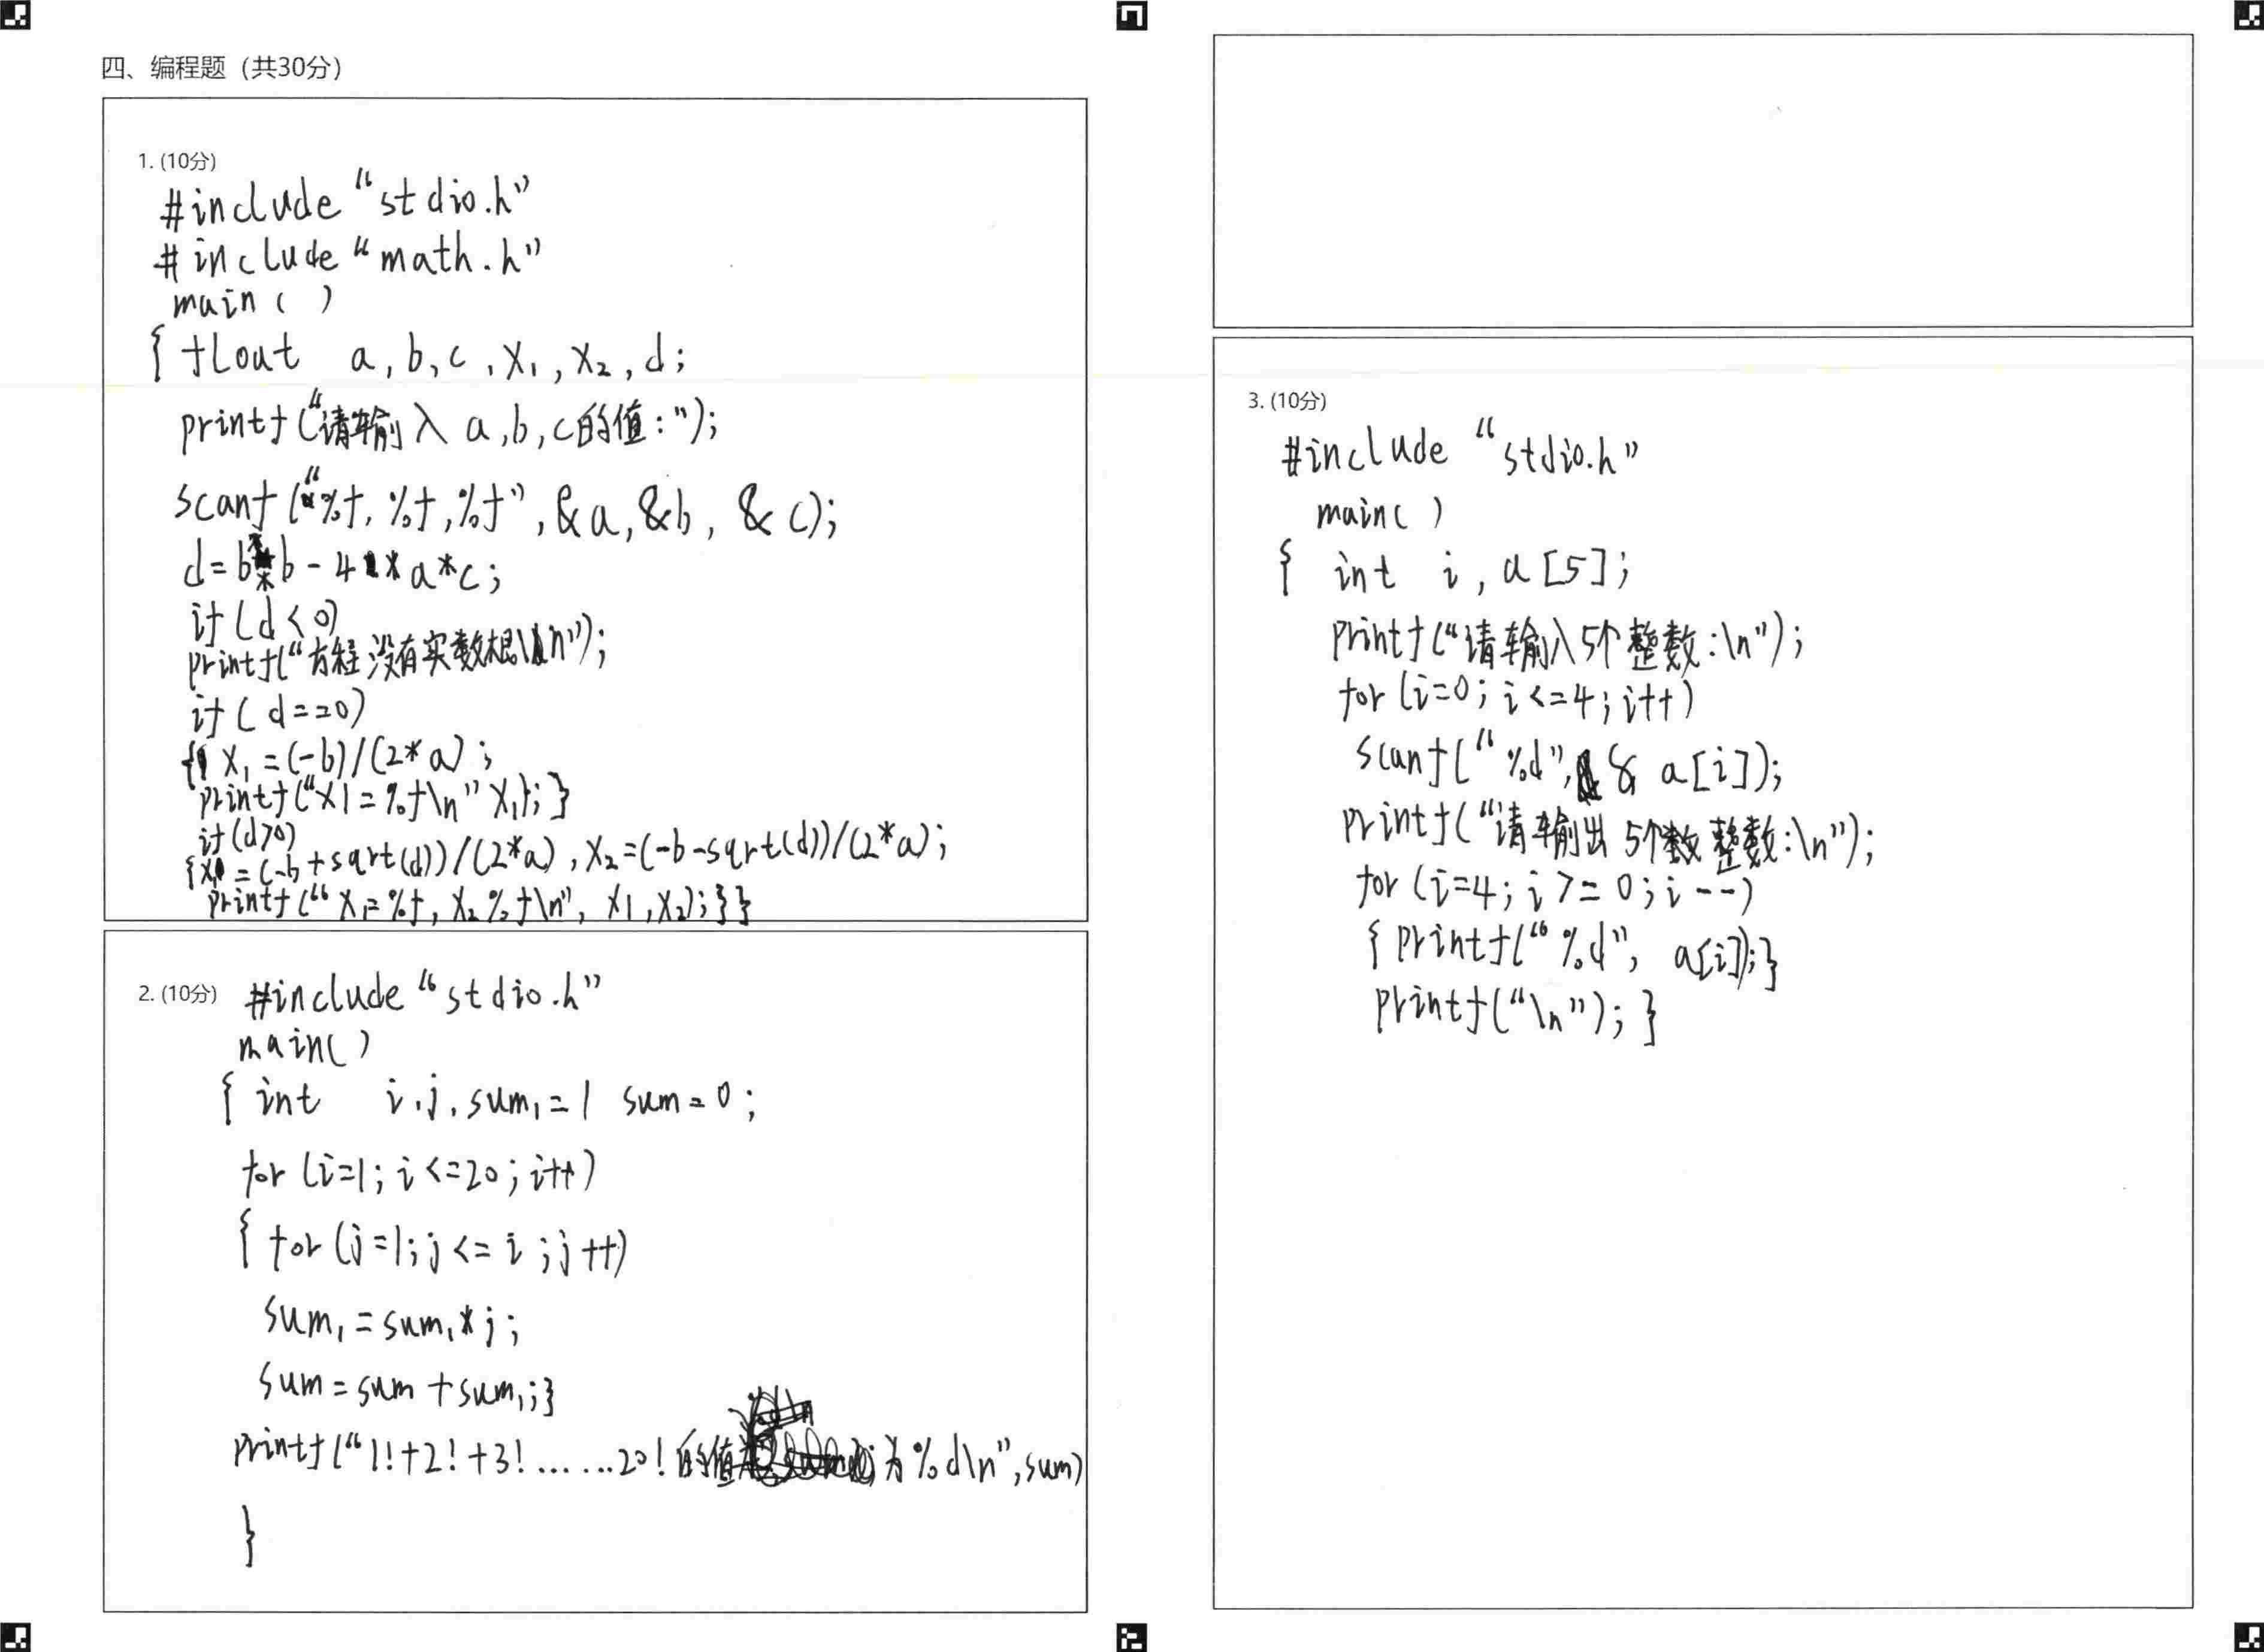 四、编程题（共30分）
1. (10分)
#include “stdio.h”
#include “math.h”
main ( )
{ float a, b, c, x₁, x₂, d;
printf (“请输入 a, b, c的值：”);
scanf (“%f, %f, %f”, &a, &b, & c);
d = b * b - 4 * a * c;
if (d < 0)
printf (“方程没有实数根\n”);
if ( d == 0)
{ x₁ = (-b) / (2 * a) ;
printf (“x1 = %f\n” x₁); }
if (d>0)
{x₁ = (-b + sqrt(d)) / (2*a) , x₂ = (-b-sqrt(d)) / (2*a);
printf (“x₁= %f, x₂ %f\n”, x₁ , x₂); } }
2. (10分) #include “stdio.h”
main( )
{ int i, j, sum₁ = 1 sum = 0 ;
for (i=1; i <= 20 ; i++)
{ for (j =1; j <= i ; j ++)
sum₁ = sum₁ * j ;
sum = sum + sum₁; }
printf (“1! + 2! + 3! ……20! 的值为 %d\n”, sum)
}
3. (10分)
#include “stdio.h”
main( )
{ int i , a [5] ;
printf (“请输入5个整数：\n”);
for (i=0 ; i <= 4 ; i++)
scanf (“%d”, & a [i]);
printf (“请输出 5个数整数：\n”);
for (i=4; i >= 0 ; i --)
{ printf (“%d”, a[i]); }
printf (“\n”) ; }